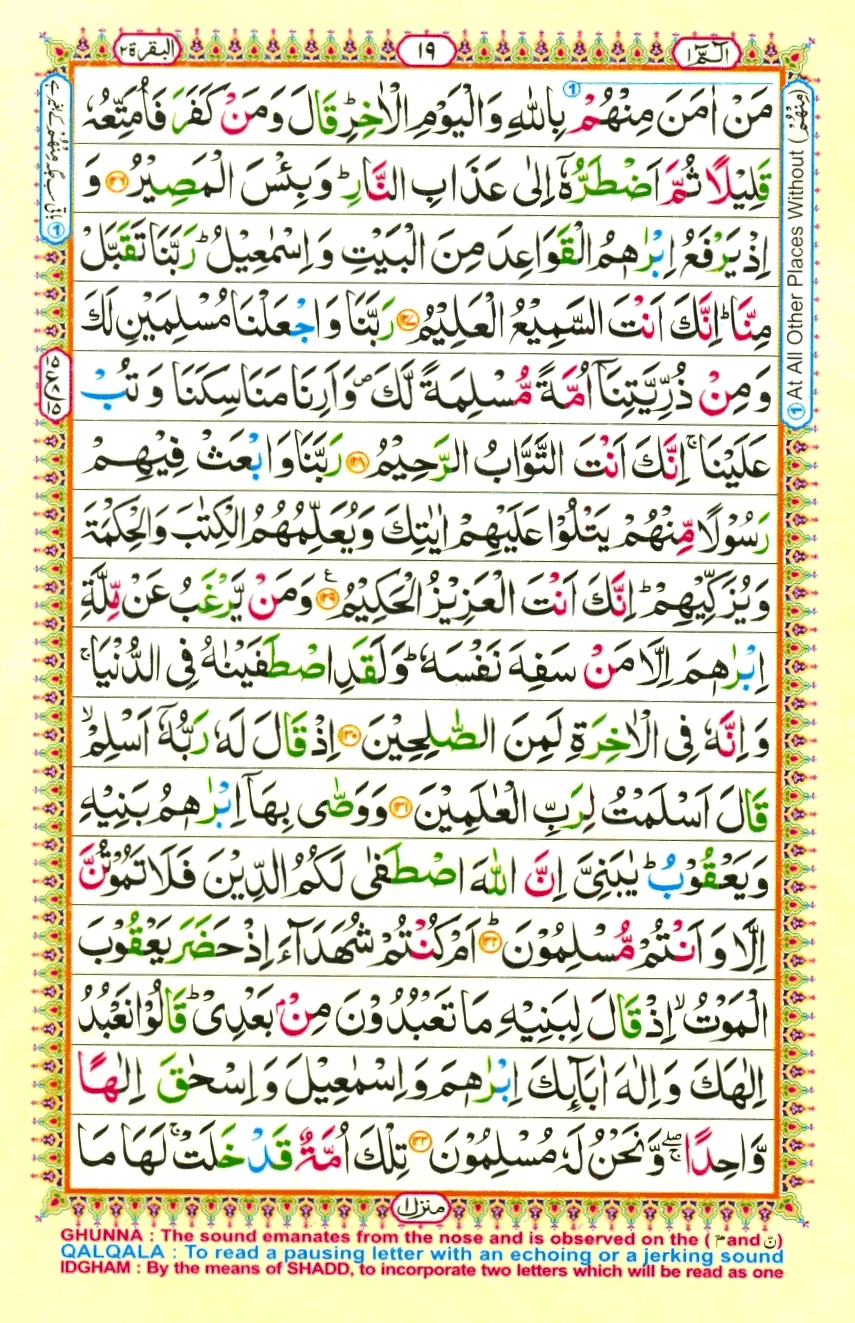 الٓمّٓ ١
١٩
البقرة ٢
مَنْ اٰمَنَ مِنْهُمْ بِاللّٰهِ وَالْیَوْمِ الْاٰخِرِؕ قَالَ وَمَنْ كَفَرَ فَاُمَتِّعُهٗ
قَلِیْلًا ثُمَّ اَضْطَرُّهٗۤ اِلٰى عَذَابِ النَّارِؕ وَبِئْسَ الْمَصِیْرُ ﴿۱۲۶﴾ وَ
اِذْ یَرْفَعُ اِبْرٰهٖمُ الْقَوَاعِدَ مِنَ الْبَیْتِ وَاِسْمٰعِیْلُؕ رَبَّنَا تَقَبَّلْ
مِنَّاؕ اِنَّكَ اَنْتَ السَّمِیْعُ الْعَلِیْمُ ﴿۱۲۷﴾ رَبَّنَا وَاجْعَلْنَا مُسْلِمَیْنِ لَكَ
وَمِنْ ذُرِّیَّتِنَاۤ اُمَّةً مُّسْلِمَةً لَّكَ۪ وَاَرِنَا مَنَاسِكَنَا وَتُبْ
عَلَیْنَاۚ اِنَّكَ اَنْتَ التَّوَّابُ الرَّحِیْمُ ﴿۱۲۸﴾ رَبَّنَا وَابْعَثْ فِیْهِمْ
رَسُوْلًا مِّنْهُمْ یَتْلُوْا عَلَیْهِمْ اٰیٰتِكَ وَیُعَلِّمُهُمُ الْكِتٰبَ وَالْحِكْمَةَ
وَیُزَكِّیْهِمْؕ اِنَّكَ اَنْتَ الْعَزِیْزُ الْحَكِیْمُ ﴿۱۲۹﴾ ع وَمَنْ یَّرْغَبُ عَنْ مِّلَّةِ
اِبْرٰهٖمَ اِلَّا مَنْ سَفِهَ نَفْسَهٗؕ وَلَقَدِ اصْطَفَیْنٰهُ فِی الدُّنْیَاۚ
وَاِنَّهٗ فِی الْاٰخِرَةِ لَمِنَ الصّٰلِحِیْنَ ﴿۱۳۰﴾ اِذْ قَالَ لَهٗ رَبُّهٗۤ اَسْلِمْۙ
قَالَ اَسْلَمْتُ لِرَبِّ الْعٰلَمِیْنَ ﴿۱۳۱﴾ وَوَصّٰى بِهَاۤ اِبْرٰهٖمُ بَنِیْهِ
وَیَعْقُوْبُؕ یٰبَنِیَّ اِنَّ اللّٰهَ اصْطَفٰى لَكُمُ الدِّیْنَ فَلَا تَمُوْتُنَّ
اِلَّا وَاَنْتُمْ مُّسْلِمُوْنَؕ ﴿۱۳۲﴾ اَمْ كُنْتُمْ شُهَدَآءَ اِذْ حَضَرَ یَعْقُوْبَ
الْمَوْتُۙ اِذْ قَالَ لِبَنِیْهِ مَا تَعْبُدُوْنَ مِنْۢ بَعْدِیْؕ قَالُوْا نَعْبُدُ
اِلٰهَكَ وَاِلٰهَ اٰبَآىِٕكَ اِبْرٰهٖمَ وَاِسْمٰعِیْلَ وَاِسْحٰقَ اِلٰهًا
وَّاحِدًاۖۚ وَّنَحْنُ لَهٗ مُسْلِمُوْنَ ﴿۱۳۳﴾ تِلْكَ اُمَّةٌ قَدْ خَلَتْۚ لَهَا مَا
① At All Other Places Without (مِنْهُمْ)
منزل ١
GHUNNA : The sound emanates from the nose and is observed on the ( مّ and نّ )
QALQALA : To read a pausing letter with an echoing or a jerking sound
IDGHAM : By the means of SHADD, to incorporate two letters which will be read as one